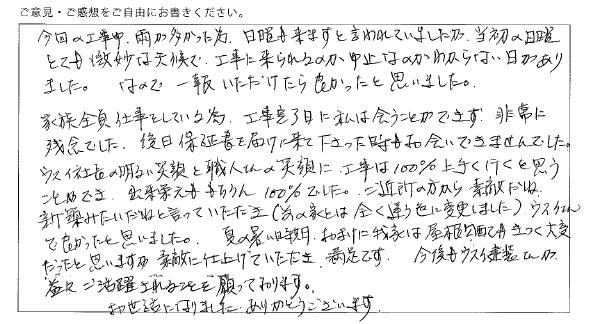 ご意見・ご感想をご自由にお書きください。
今回の工事中、雨が多かった為、日曜も来ますと言われていましたが、当初の日曜
とても微妙な天候で、工事に来られるのか中止なのかわからない日があり
ました。 なので一報いただけたら良かったと思いました。
家族全員仕事をしている為、工事完了日に私は会うことができず、非常に
残念でした。後日保証書を届けに来て下さった時もお会いできませんでした。
ウスイ社長の明るい笑顔と職人さんの笑顔に、工事は100%上手く行くと思う
ことができ、出来栄えももちろん100%でした。ご近所の方から素敵だね、
新築みたいだねと言っていただき(前の家とは全く違う色に変更しました)ウスイさん
で良かったと思いました。 夏の暑い日数月、おまけに我家は屋根勾配もきつく大変
だったと思いますが素敵に仕上げていただき、満足です。 今後もウスイ建装さんが、
益々ご活躍されることを願っております。
お世話になりました。ありがとうございます。